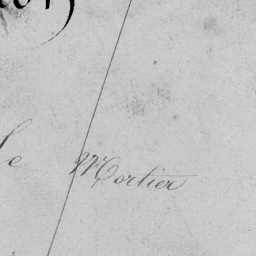 le Mortier